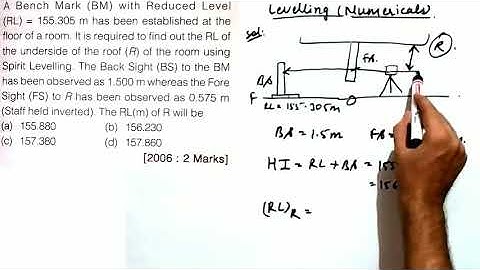 A Bench Mark (BM) with Reduced Level
(RL) = 155.305 m has been established at the
floor of a room. It is required to find out the RL of
the underside of the roof (R) of the room using
Spirit Levelling. The Back Sight (BS) to the BM
has been observed as 1.500 m whereas the Fore
Sight (FS) to R has been observed as 0.575 m
(Staff held inverted). The RL(m) of R will be
(a) 155.880 (b) 156.230
(c) 157.380 (d) 157.860
[2006 : 2 Marks]
Levelling (Numericals)
Sol:
R
FS
BS
F
RL = 155.305m
BS = 1.5m FS
HI = RL + BS = 155
= 156
(RL)R =